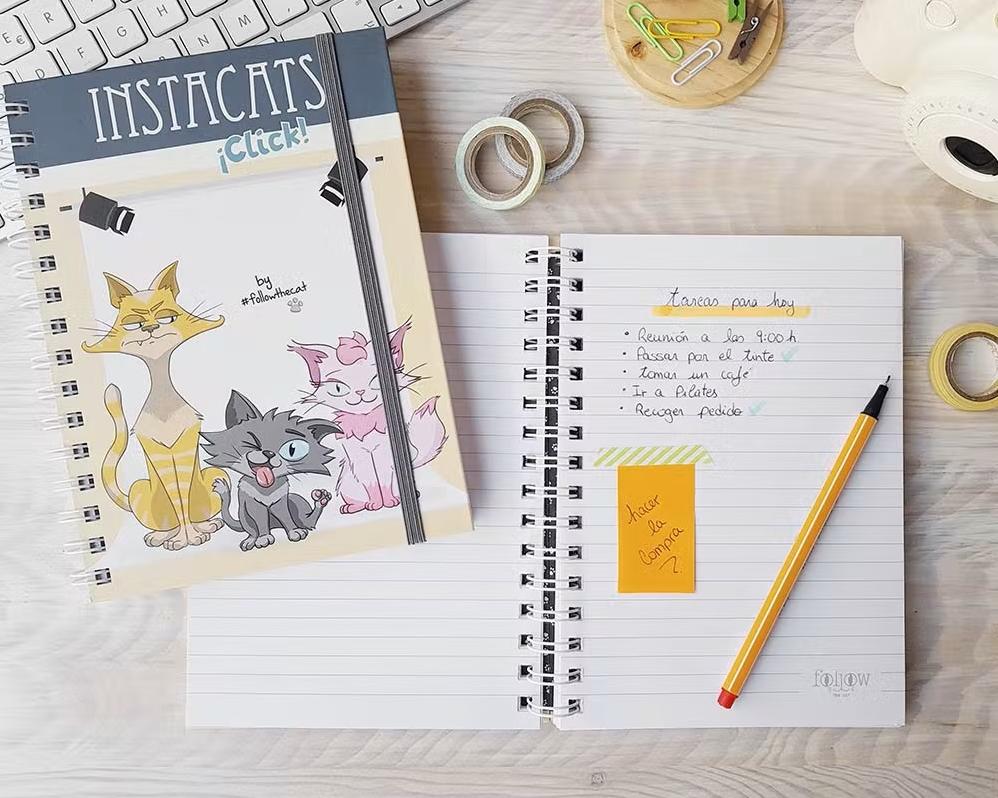 INSTACATS
¡Click!
by
#followthecat
tareas para hoy
• Reunión a las 9:00 h.
• Passar por el tinte
• tomar un café
• Ir a Pilates
• Recoger pedido
hacer
la
compra
follow
THE CAT